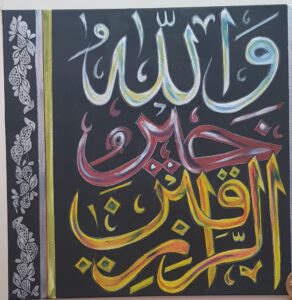 والله
خير
الرازقين